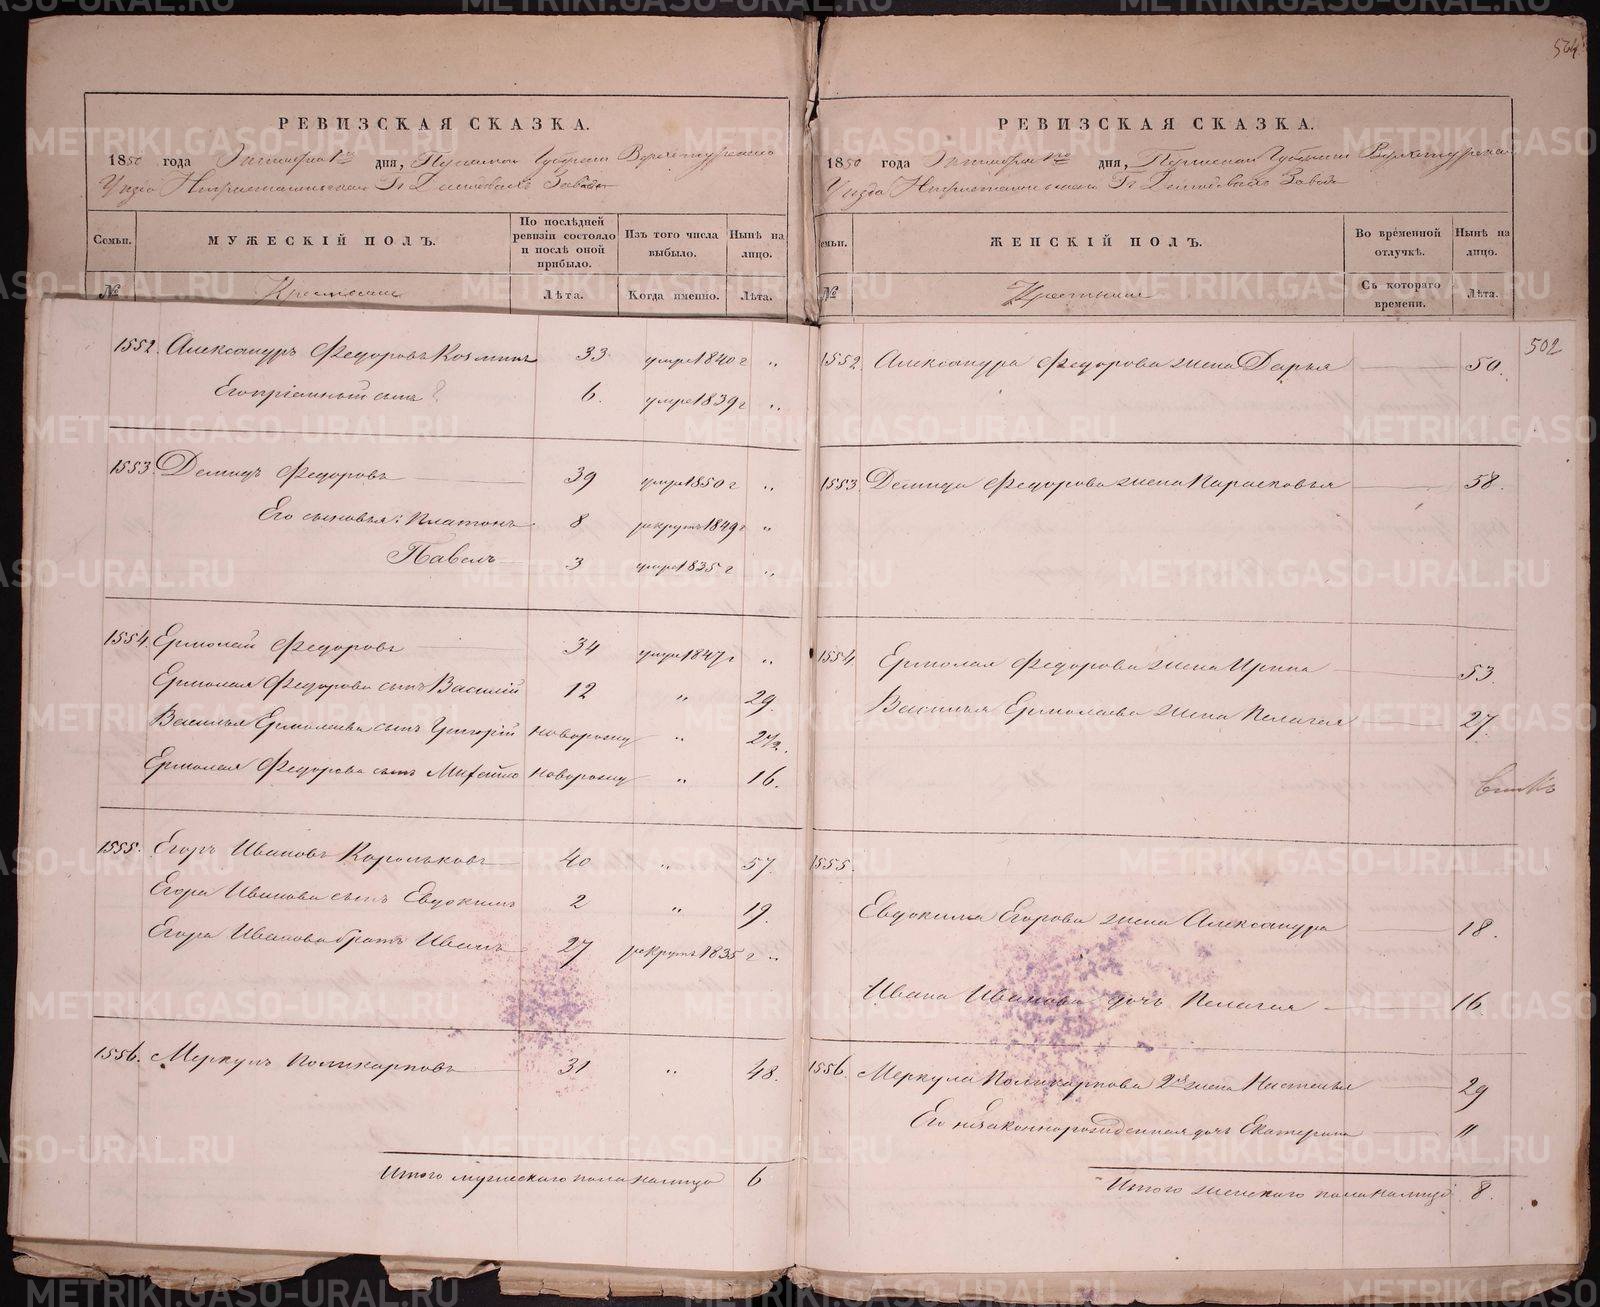 524
РЕВИЗСКАЯ СКАЗКА.
1850 года Октября 1го дня, Пермской Губернии Верхотурскаго
Уезда Нижнетагильскаго Гг. Демидовыхъ Завода
Семьи.
МУЖЕСКІЙ ПОЛЪ.
По послѣдней ревизіи состояло и послѣ оной прибыло.
Изъ того числа выбыло.
Нынѣ на лицо.
№
Крестьяне
Лѣта.
Когда именно.
Лѣта.
1552. Александръ Федоровъ Козминъ 33 умре 1840 г „
Его пріемный сынъ 6. умре 1839 г „
1553. Демидъ Федоровъ 39 умре 1850 г „
Его сыновья: Платонъ 8 рекрутъ 1849 г „
Павелъ 3 умре 1835 г „
1554. Ермолай Федоровъ 34 умре 1847 г „
Ермолая Федорова сынъ Василій 12 „ 29.
Василья Ермолаева сынъ Григорій новорожд „ 2 1/2.
Ермолая Федорова сынъ Михайло новорожд „ 16.
1555. Егоръ Ивановъ Корольковъ 40 „ 57.
Егора Иванова сынъ Евдокимъ 2 „ 19.
Егора Иванова братъ Иванъ 27 рекрутъ 1835 г „
1556. Меркулъ Поликарповъ 31 „ 48.
Итого мужескаго пола налицо 6
РЕВИЗСКАЯ СКАЗКА.
1850 года Октября 1го дня, Пермской Губернии Верхотурскаго
Уезда Нижнетагильскаго Гг. Демидовыхъ Завода
емьи.
ЖЕНСКІЙ ПОЛЪ.
Во врéменной отлучкѣ.
Нынѣ на лицо.
№
Крестьяне
Съ котораго времени.
Лѣта.
502
1552. Александра Федорова жена Дарья 50.
1553 Демида Федорова жена Парасковья 58.
1554 Ермолая Федорова жена Ирина 53.
Василья Ермолаева жена Пелагея 27.
1555.
Евдокима Егорова жена Александра 18.
Ивана Иванова дочь Пелагея 16
1556. Меркула Поликарпова 2я жена Настасья 29
Его незаконнорожденная дочь Екатерина 11
Итого женскаго пола налицо 8.
METRIKI.GASO-URAL.RU